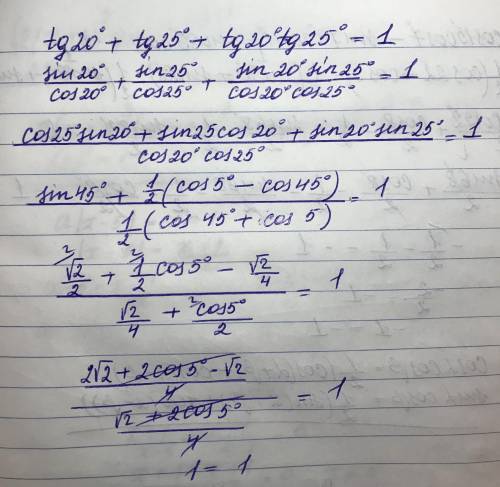 tg20° + tg25° + tg20°tg25° = 1
sin20°/cos20° + sin25°/cos25° + sin20°sin25°/cos20°cos25° = 1
cos25°sin20° + sin25cos20° + sin20°sin25°/cos20°cos25° = 1
sin45° + 1/2(cos5° - cos45°)/1/2(cos45° + cos5) = 1
√2/2 + 1/2cos5° - √2/4 / √2/4 + cos5°/2 = 1
2√2 + 2cos5° - √2/4 / √2 + 2cos5°/4 = 1
1 = 1